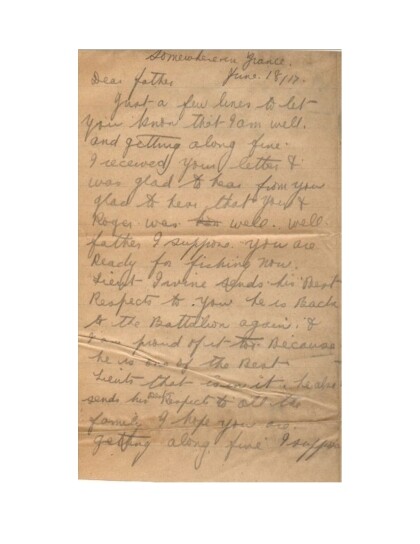 Somewhere in France.
Dear father June. 18/17.
Just a few lines to let
you know that I am well.
and getting along fine.
I received your letter &
was glad to hear from you
glad to hear that you &
Roger was well. well
father I suppose. you are
Ready for fishing now.
Lieut Irvine sends his Best
Respects to. you he is Back
to the Battalion again. &
I am proud of it Because
he is one of the Best
Lieuts that is in it he also
sends his Respects to all the
family I hope you are.
getting along. fine I suppose